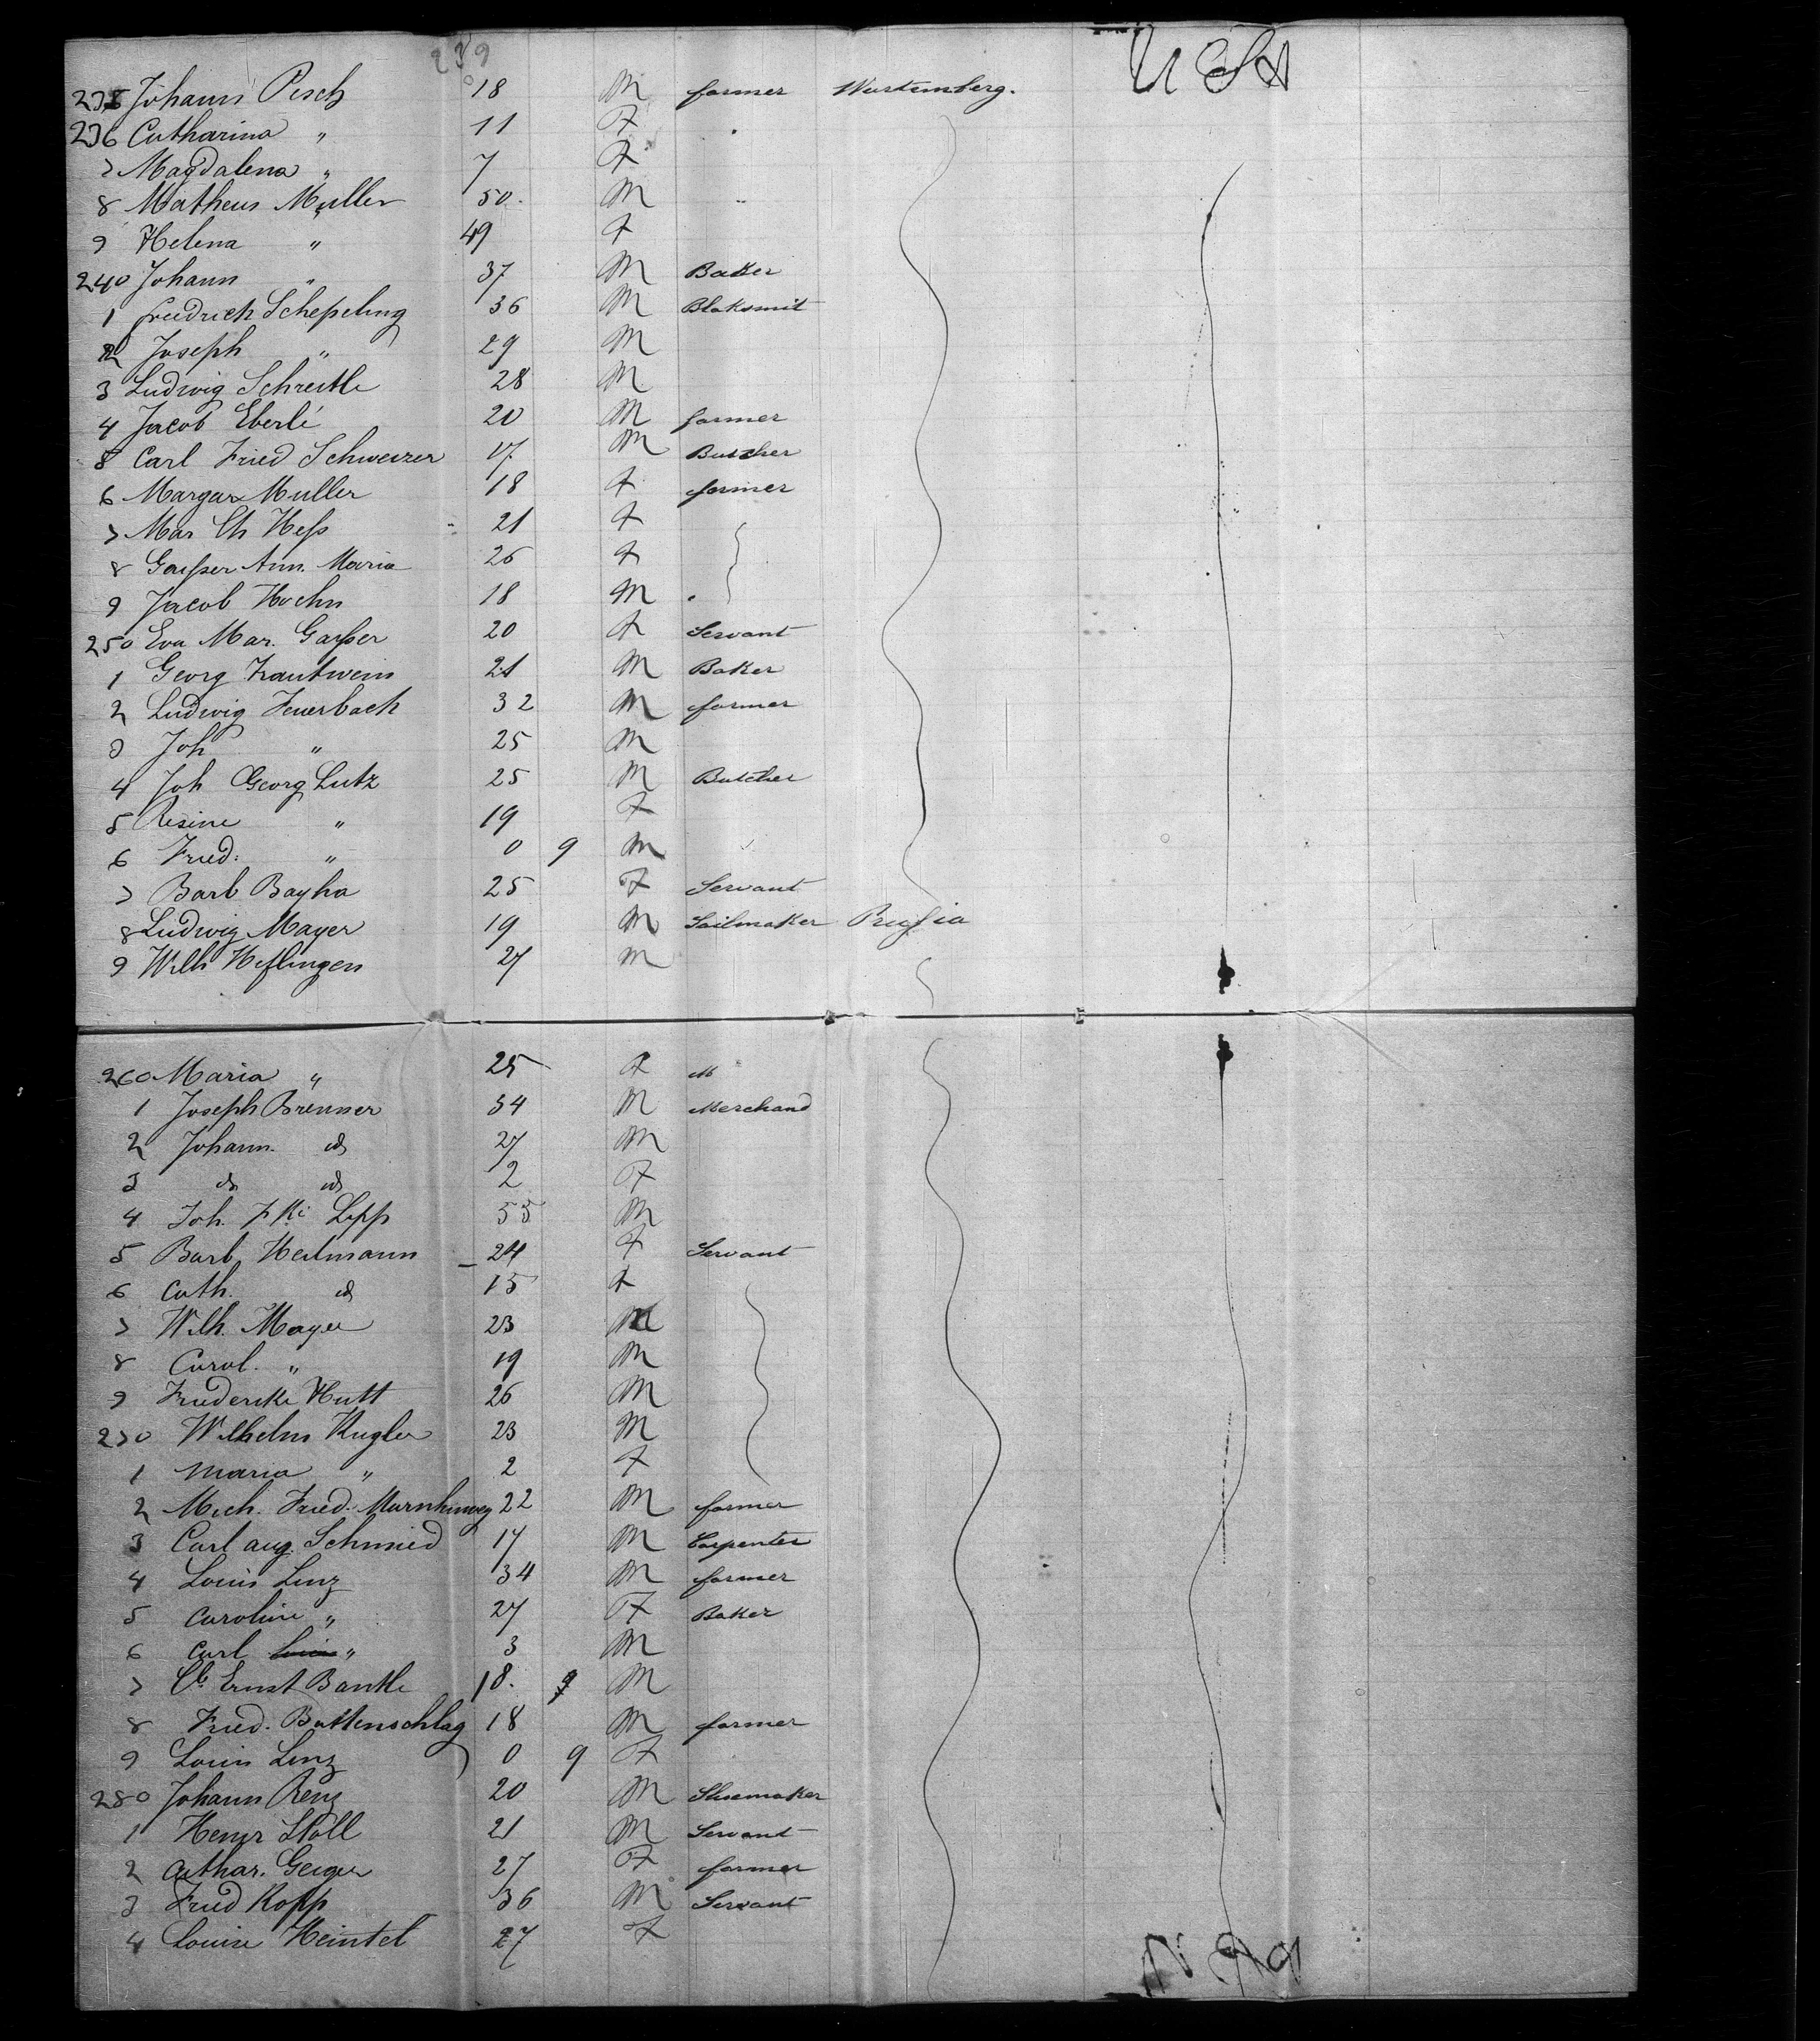 239
235 Johann Pesch 18 M farmer Wurtemberg. USA
236 Catharina " 11 F "
7 Magdalena " 7 F
8 Matheus Muller 50. M "
9 Helena " 49 F
240 Johann " 37 M Baker
1 Friedrich Schepeling 36 M Blaksmit
2 Joseph " 29 M
3 Ludwig Schreitle 28 M
4 Jacob Eberlé 20 M farmer
5 Carl Fried Schweizer 17. M Butcher
6 Margar Muller 18 F farmer
7 Mar Ch Heſs 21 F
8 Gaiſser Ann. Maria 26 F
9 Jacob Hoehn 18 M "
250 Eva Mar. Gaiſser 20 F Servant
1 Georg Trautwein 21 M Baker
2 Ludwig Feuerbach 32 M farmer
3 Joh " 25 M
4 Joh Georg Lutz 25 M Butcher
5 Rosine " 19 F
6 Fried: " 0 9 M
7 Barb Bayha 25 F Servant
8 Ludwig Mayer 19 M Sailmaker Pruſsia
9 Wilh Heflingen 27 M
260 Maria " 25 F M
1 Joseph Brenner 34 M Merchand
2 Johann. do 27 M
3 do do 2 F
4 Joh. Lipp 55 M
5 Barb. Heilmann 24 F Servant
6 Cath. do 15 F
7 Wilh. Mayer 23 M
8 Carol. " 19 M
9 Friederike Hutt 26 M
270 Wilhelm Kugler 23 M
1 Maria " 2 F
2 Mich. Fried. 22 M farmer
3 Carl aug. Schmied 17 M Carpenter
4 Louis Linz 34 M farmer
5 Caroline " 27 F Baker
6 Carl " 3 M
7 Ernst Bantle 18. 9 M
8 Fried. Battenschlag 18 M farmer
9 Louis Linz 0 9 F
280 Johann Renz 20 M Shuemaker
1 Henr Stoll 21 M Servant
2 Cathar. Geiger 27 F farmer
3 Fried Kopp 36 M Servant
4 Louise Heintel 27 F